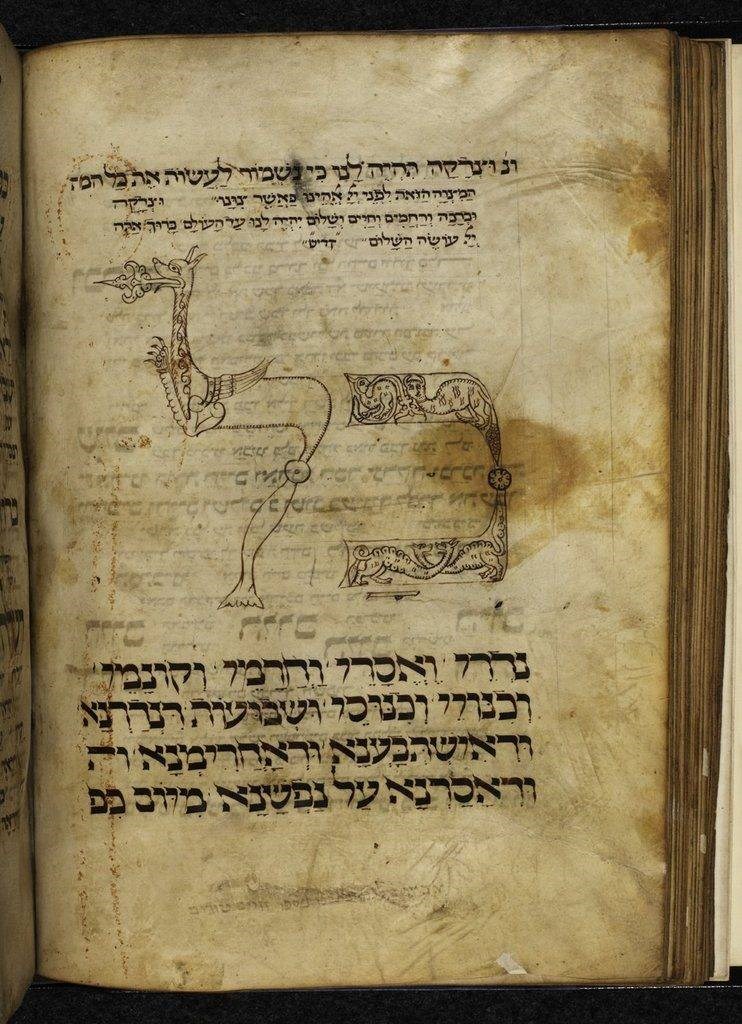 וצדקה תהיה לנו כי נשמור לעשות את כל המצ
המצוה הזאת לפני יי אלהינו כאשר צונו וצדקה
וברכה ורחמים וחיים ושלום יהיה לנו עד העולם ברוך אתה
יי עושה השלום קדיש
כל
נדרי ואסרי וחרמי וקונמי
וכנויי וקנוסי ושבועות דנדרנא
ודאישתבענא ודאחרימנא ודי
ודאסרנא על נפשנא מיום כפ